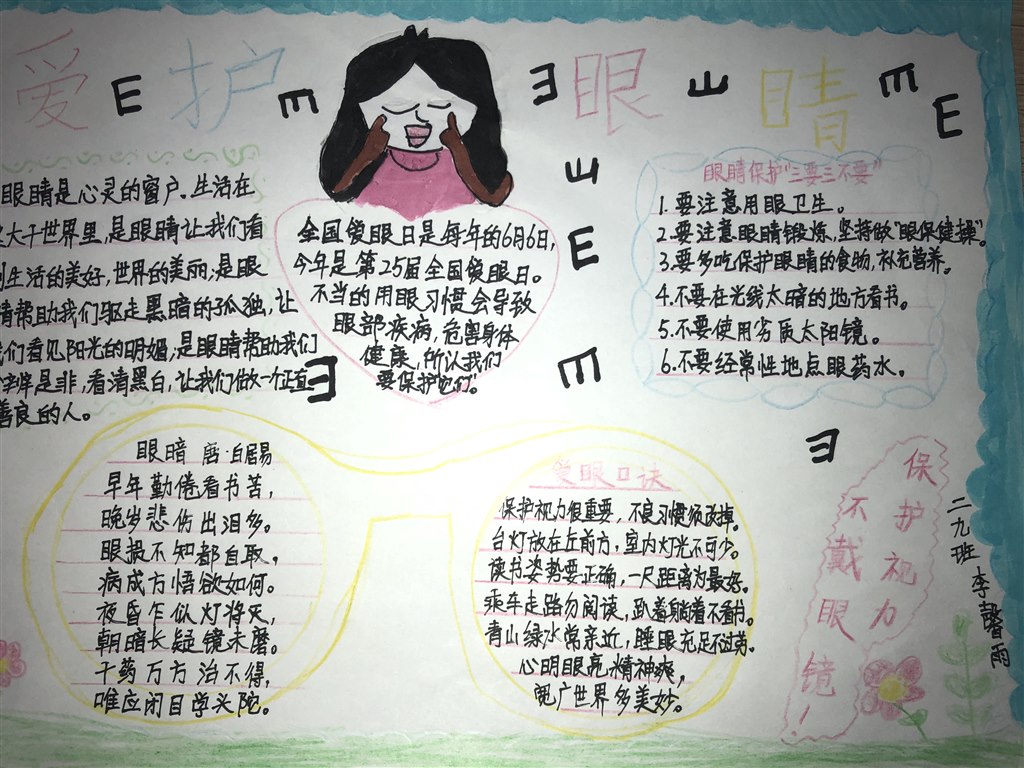 爱护眼睛
E E E E E E
E
E
E
E
E
眼睛是心灵的窗户.生活在
大千世界里,是眼睛让我们看
到生活的美好,世界的美丽;是眼
睛帮助我们驱走黑暗的孤独,让
我们看见阳光的明媚,是眼睛帮助我们
辨是非,看清黑白,让我们做一个正直
善良的人。
全国爱眼日是每年的6月6日,
今年是第25届全国爱眼日。
不当的用眼习惯会导致
眼部疾病,危害身体
健康,所以我们
要保护它们。
眼睛保护"三要三不要"
1.要注意用眼卫生。
2.要注意眼睛锻炼,坚持做"眼保健操"。
3.要多吃保护眼睛的食物,补充营养。
4.不要在光线太暗的地方看书。
5.不要使用劣质太阳镜。
6.不要经常性地点眼药水。
眼暗 唐·白居易
早年勤倦看书苦,
晚岁悲伤出泪多。
眼损不知都自取,
病成方悟欲如何。
夜昏乍似灯将灭,
朝暗长疑镜未磨。
千药万方治不得,
唯应闭目学头陀。
爱眼口诀
保护视力很重要,不良习惯须改掉。
台灯放在左前方,室内灯光不可少。
读书姿势要正确,一尺距离为最好。
乘车走路勿阅读,趴着躺着不看书。
青山绿水常亲近,睡眠充足
心明眼亮精神爽,
宽广世界多美妙。
保护视力
不戴眼镜!
二九班李馨雨